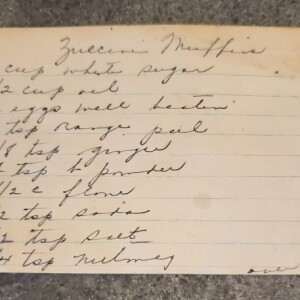 Zuccini Muffins
cup white sugar
/2 cup oil
eggs well beaten
tsp range peel
/8 tsp ginger
tsp b powder
1/2 c flour
2 tsp soda
2 tsp salt
4 tsp nutmeg
over